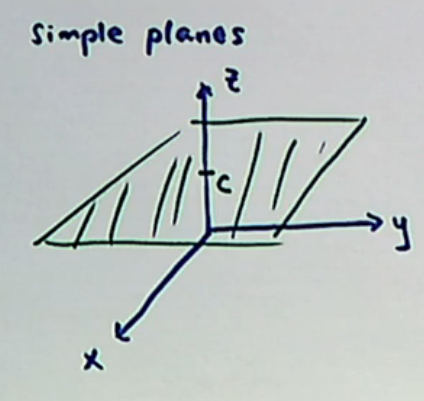 simple planes
z
c
y
x